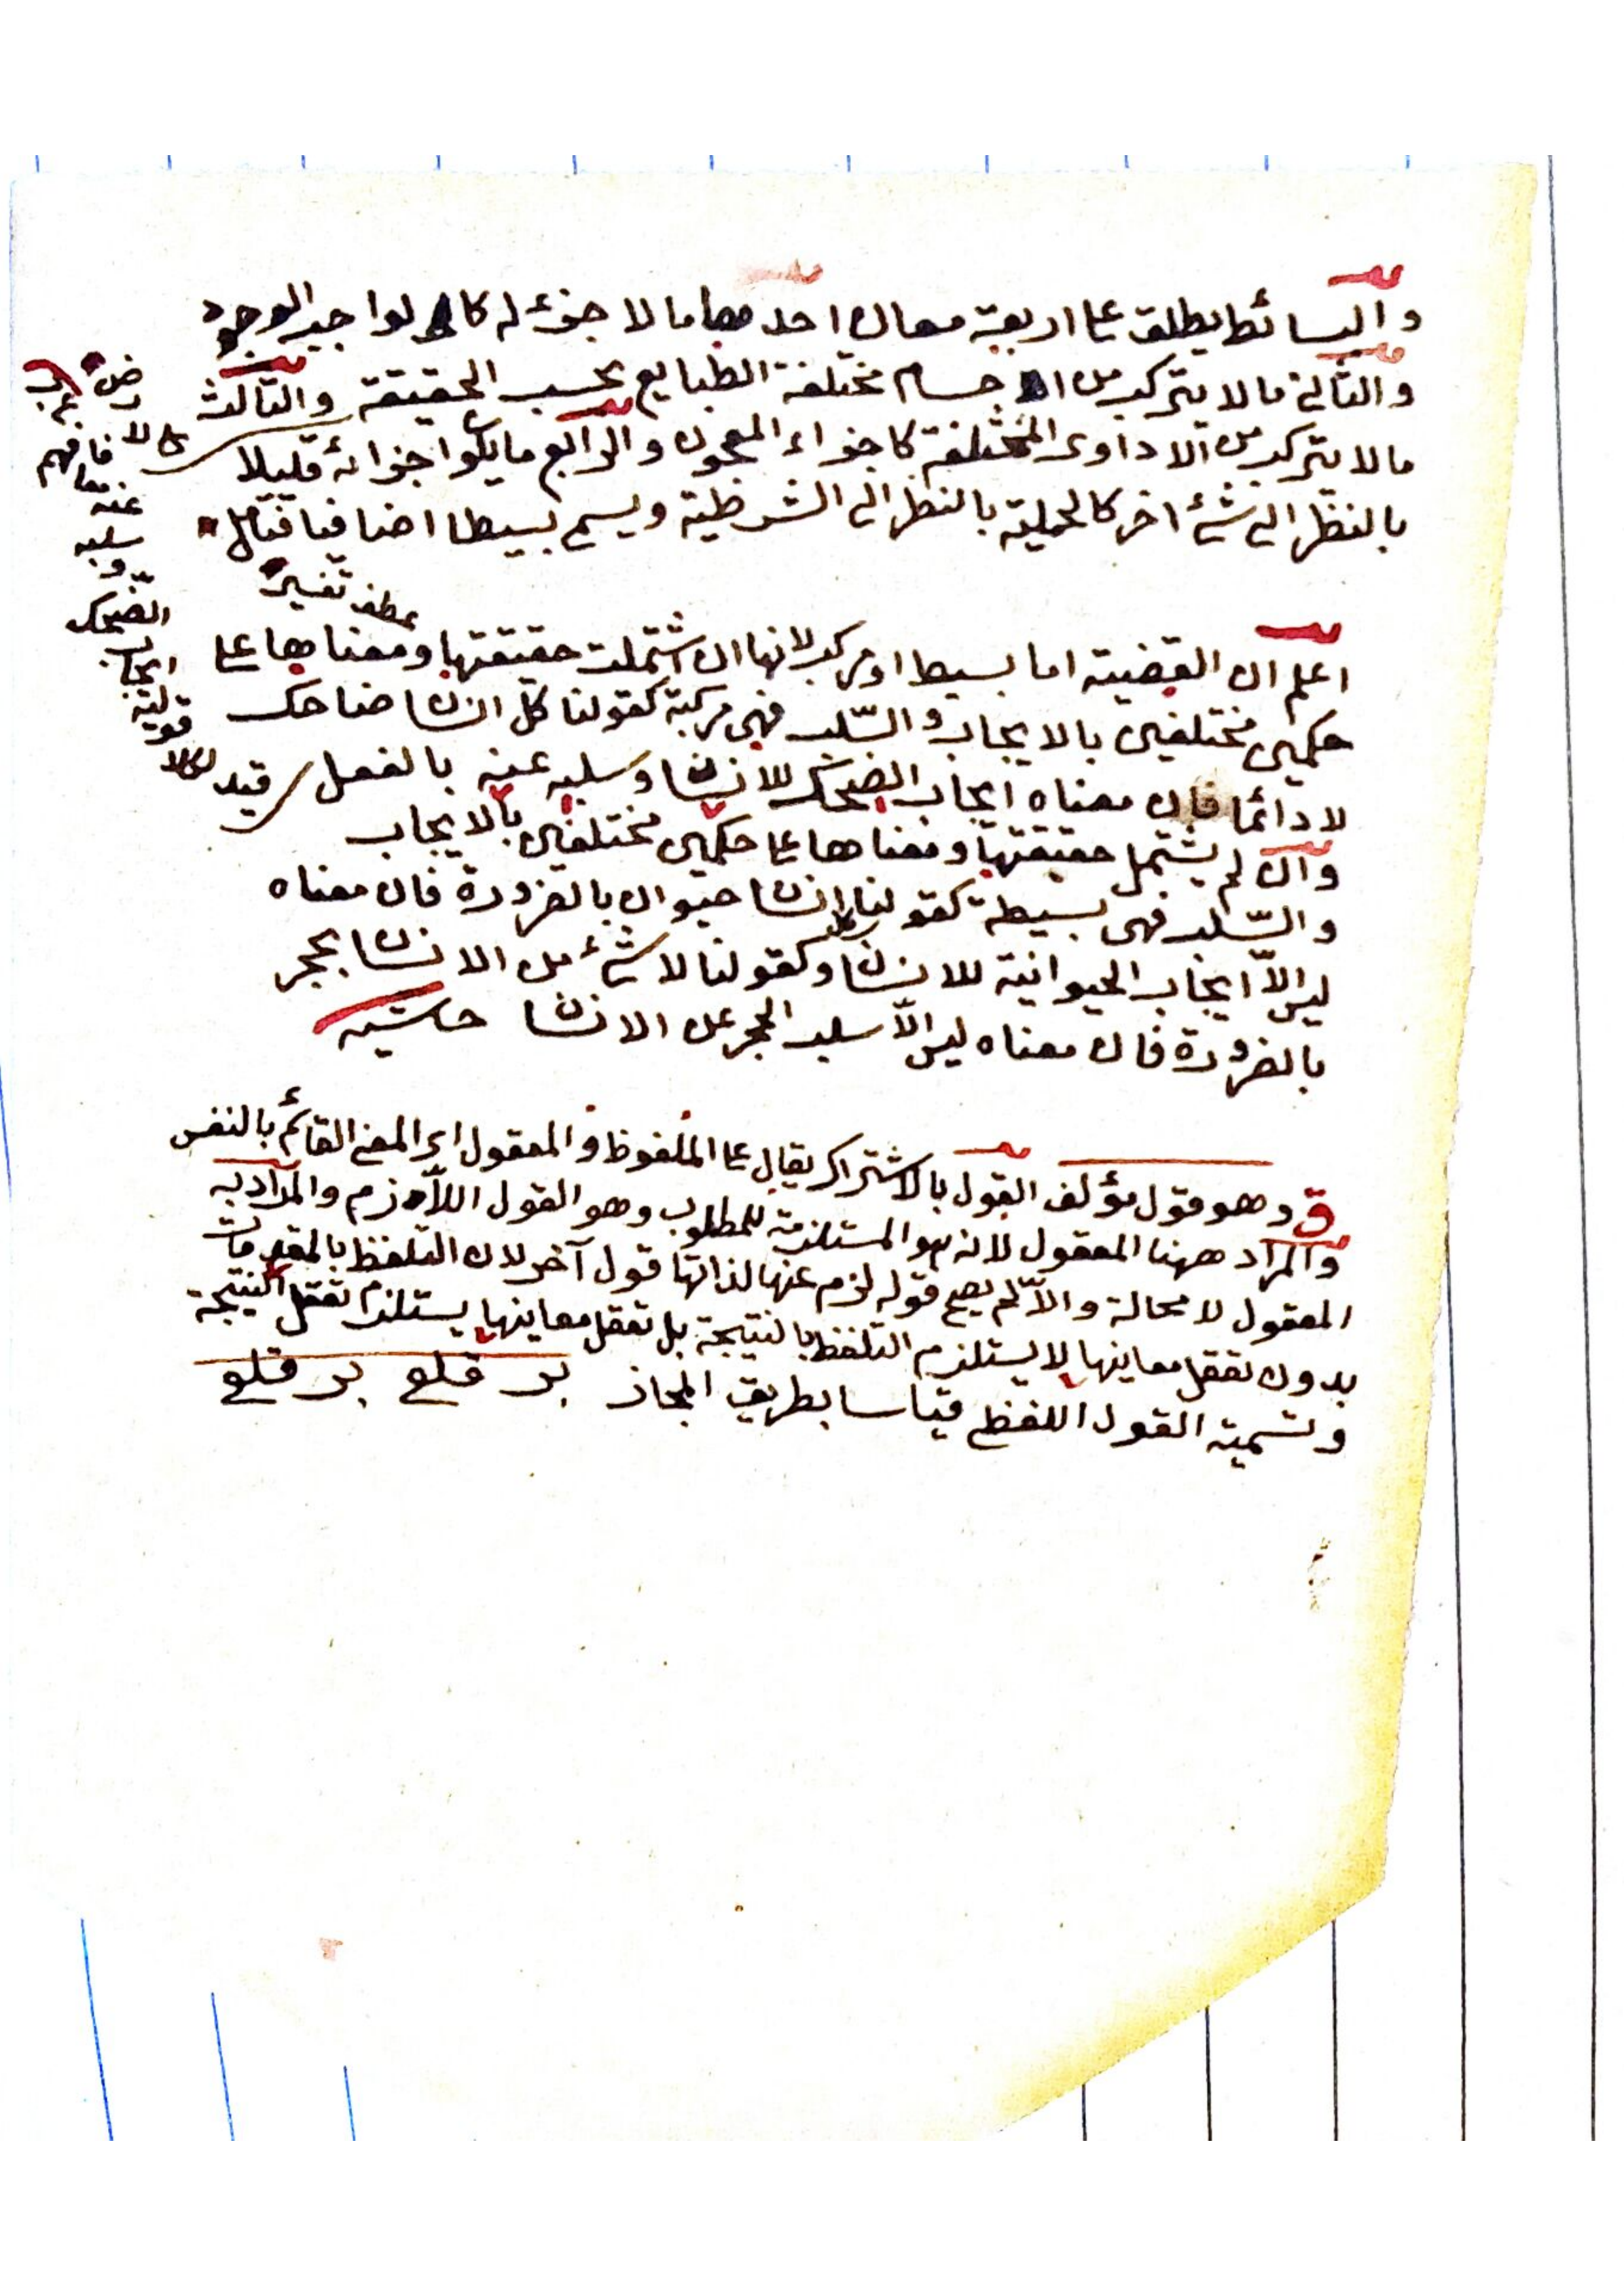 والبسائط يطلق على اربعة معان احدها ما لا جزء له كالواجب الوجود
والثانى ما لا يتركب من الاجسام مختلفة الطبايع بحسب الحقيقة والثالث
ما لا يتركب من الادوى المختلفة كاجزاء المعجون والرابع ما يكون اجزائه قليلا
بالنظر الى شئ اخر كالحملية بالنظر الى الشرطية ويسمى بسيطا اضافيا فتأمل
عطف تفسير
اعلم ان القضية اما بسيط او مركب لانها ان اشتملت حقيقتها ومعناها على
حكمين مختلفين بالايجاب والسّلب فهى مركبة كقولنا كل انسان ضاحك
لا دائما فان معناه ايجاب الضحك للانسان وسلبه عنه بالفعل قيد
وان لم يشتمل حقيقتها ومعناها على حكمين مختلفين بالايجاب
والسّلب فهى بسيطة كقولنا كل انسان حيوان بالضرورة فان معناه
ليس الاّ ايجاب الحيوانية للانسان وكقولنا لا شئ من الانسان بحجر
بالضرورة فان معناه ليس الاّ سلب الحجر عن الانسان حاشيه
قد هو قول مؤلف القول بالاشتراك يقال على الملفوظ والمعقول اى المعنى القائم بالنفس
والمراد ههنا المعقول لانه هو المستلزمة للمطلوب وهو القول اللاّزم والمراد به
المعقول لا محالة والاّ لم يصح قوله لزم عنها لذاتها قول آخر لان التلفظ بالمقدمات
بدون تعقل معاينها لا يستلزم التلفظ بالنتيجة بل تعقل معاينها يستلزم تعقل النتيجة
وتسمية القول اللفظى قياسا بطريق المجاز بر قلع بر قلع
قولية
ايجاب
الضحك
و
سلبه
عنه
فافهم